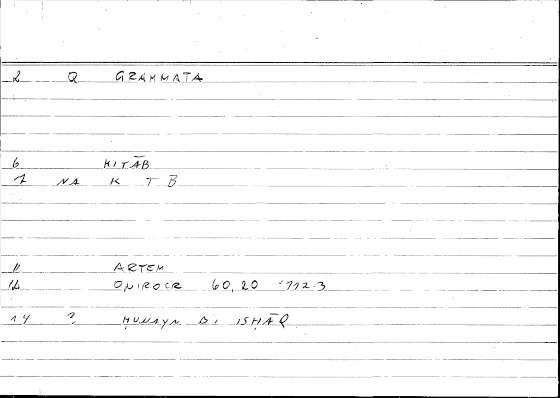 2 Q GRAMMATA
6 KITĀB
7 NA K T B
11 ARTEM
12 ONIROCR 60,20 112.3
14 ? ḤUNAYN B. ISḤĀQ